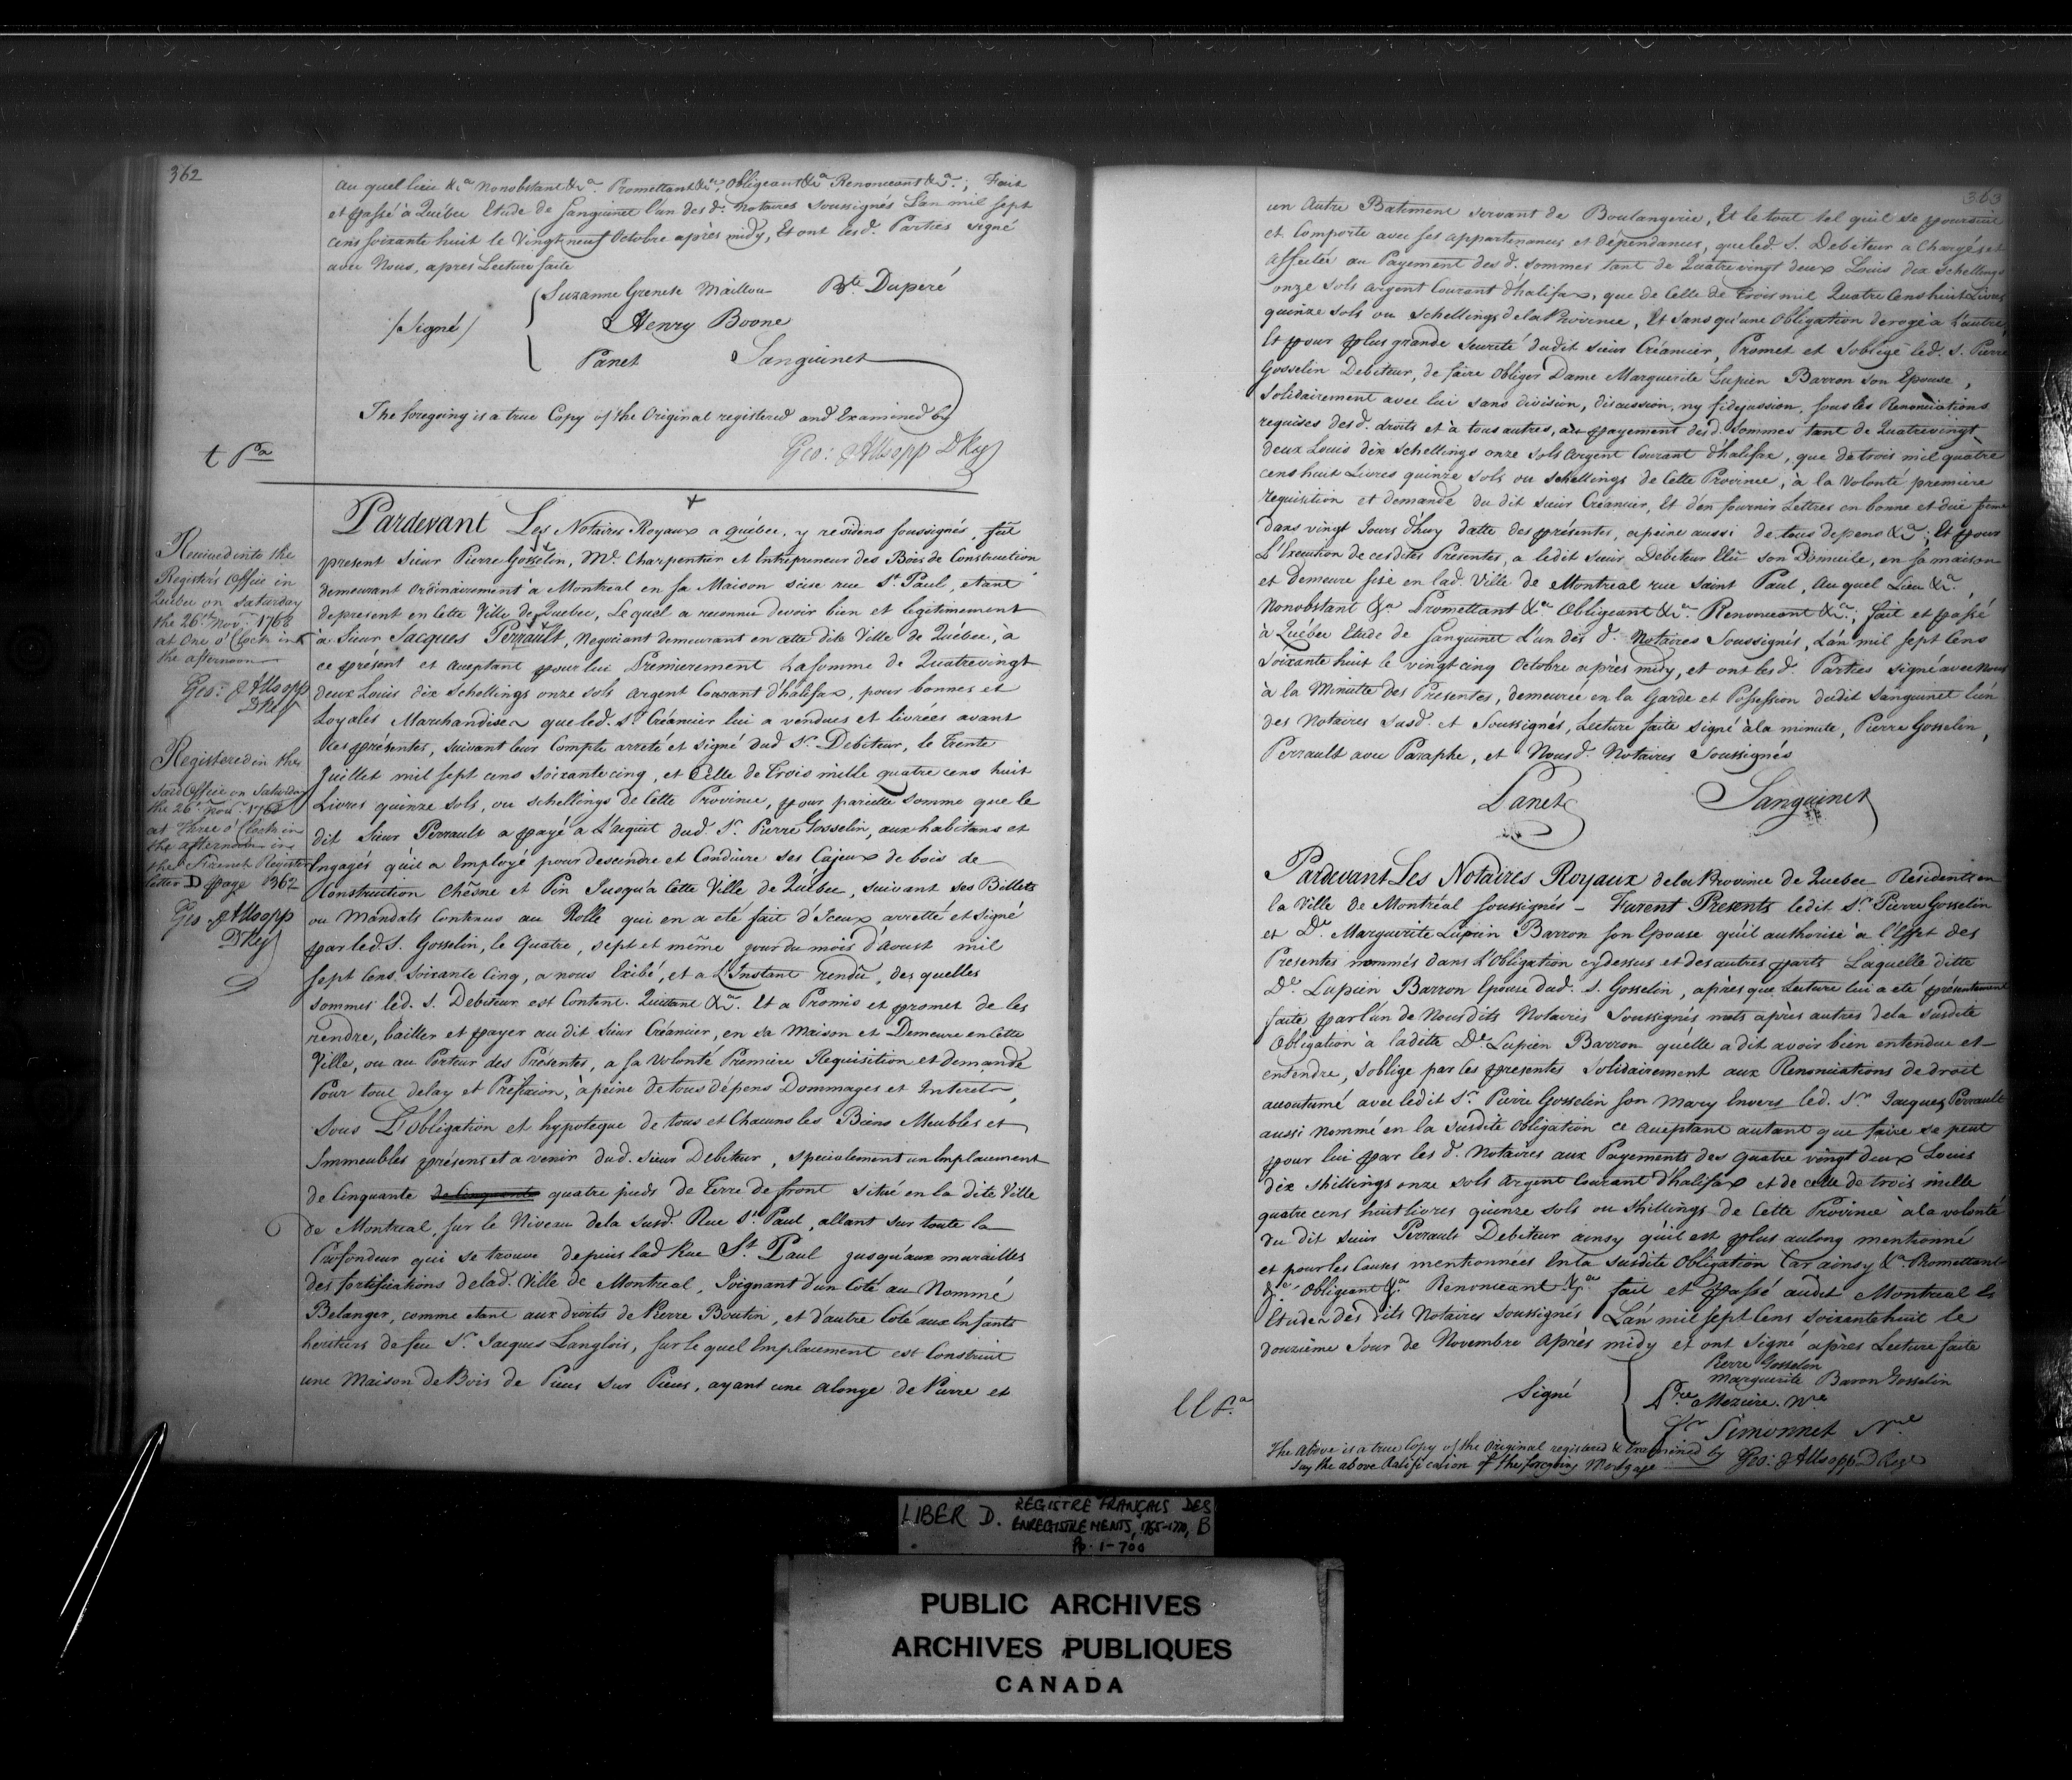 362
au quel lieu &a. Nonobstant &a. Promettant &a. Obligeant &a. Renonceant &a.; Fait
et passé à Québec Etude de Sanguinet l'un des d. Notaires soussignés L'an mil sept
cens soixante huit le Vingt neuf Octobre après midy, Et ont lesd. Parties signé
avec Nous, apres Lecture faite
Suzanne Grenete Maillou Bte. Duperé
/Signé/ Henry Boone
Panet Sanguinet
The foregoing is a true Copy of the Original registered and Examined by
Geo: Allsopp DReg
t Pa
Received into the
Register's Office in
Quebec on Saturday
the 26th. Nov. 1768
at One o'Clock in
the afternoon
Geo: Allsopp
DReg
Registered in the
said Office on Saturday
the 26th. Nov. 1768
at Three o'Clock in
the afternoon in
the French Register
letter D page 362
Geo Allsopp
DReg
Pardevant Les Notaires Royaux a Québec, y residens soussignés, fut
present Sieur Pierre Gosselin, Me. Charpentier et Entrepreneur des Bois de Construction
demeurant Ordinairement à Montreal en sa Maison scise rue St. Paul, etant
de present en Cette Ville de Quebec, Lequel a reconnu devoir bien et légitimement
à Sieur Jacques Perrault, Negociant demeurant en cette dite Ville de Québec, à
ce présent et aceptant pour lui Premierement La somme de Quatrevingt
deux Louis dix Schellings onze sols argent Courant d'halifax, pour bonnes et
Loyales Marchandises que led. Sr. Créancier lui a vendues et livrées avant
ces présentes, suivant leur Compte arreté et signé dud Sr. Debiteur, le Trente
Juillet mil sept cens soixante cinq, et Celle de Trois mille quatre cens huit
Livres quinze Sols, ou schellings de Cette Province, pour pareille somme que le
dit Sieur Perrault a payé a L'aquit dud. Sr. Pierre Gosselin, aux habitans et
Engagés qu'il a Employé pour descendre et Conduire ses Cajeux de bois de
Construction Chesne et Pin Jusqu'a Cette Ville de Québec, suivant ses Billets
ou Mandats Contenus au Rolle qui en a été fait d'Iceux arretté et Signé
par led. S. Gosselin, le Quatre, sept et même jour du mois d'Aoust mil
sept Cens Soixante Cinq, a nous Exibé, et a L'Instant rendu, des quelles
sommes led. S. Debiteur est Content. Quittant &a. Et a Promis et promet de les
rendre, bailler et payer au dit Sieur Créancier, en sa Maison et Demeure en Cette
Ville, ou au Porteur des Présentes, a sa volonté Premiere Requisition et demande
Pour tout delay et Préfixion, à peine de tous dépens Dommages et Interets,
Sous L'obligation et hypoteque de tous et Chacuns les Biens Meubles et
Immeubles présens et a venir dud. Sieur Debiteur, specialement un Emplacement
de Cinquante de Cinquante quatre pieds de Terre de front situé en la dite Ville
de Montreal, sur le Niveau de la susd. Rue St. Paul, allant sur toute la
Profondeur qui se trouve depuis lad Rue St. Paul jusqu'aux murailles
des fortifications de lad. Ville de Montreal, Joignant d'un Coté au Nommé
Belanger, comme etant aux droits de Pierre Boutin, et d'autre Coté aux Enfants
heritiers de feu Sr. Jacques Langlois, sur le quel Emplacement est Construit
une Maison de Bois de Pieces sur Pieces, ayant une alonge de Pierre et
363
un Autre Batiment servant de Boulangerie, Et le tout tel qu'il se poursuit
et Comporte avec ses appartenances et dépendances, que led S. Debiteur a Chargés et
affectés au Payement des d. sommes tant de Quatre vingt deux Louis dix schellings
onze sols argent Courant d'halifax, que de Celle de trois mil Quatre Cens huit Livres
quinze sols ou schellings de la Province, Et sans qu'une Obligation deroge à L'autre,
Et pour plus grande seureté dudit sieur Créancier, Promet et s'oblige led. S. Pierre
Gosselin Debiteur, de faire obliger Dame Marguerite Lupien Barron son Epouse,
solidairement avec lui sans division, discussion, ny fidejussion, sous les Renonciations
requises des d. droits et à tous autres, au payement des d. sommes tant de Quatrevingt
deux Louis dix schellings onze sols argent Courant d'halifax, que de trois mil quatre
cens huit Livres quinze sols ou schellings de Cette Province, à la volonté premiere
requisition et demande du dit sieur Créancier, Et d'en fournir Lettres en bonne et due forme
dans vingt Jours d'huy datte des présentes, a peine aussi de tous depens &a.; Et pour
L'Execution de cesdites Presentes, a ledit sieur Debiteur Elu son Domicile, en sa maison
et demeure sise en lad. Ville de Montreal rue Saint Paul, Au quel Lieu &a.
Nonobstant &a Promettant &a Obligeant &a. Renonceant &a.; fait et passé
à Québec Etude de Sanguinet L'un des d. Notaires Soussignés, L'an mil sept Cens
soixante huit le vingt cinq Octobre après midy, et ont lesd. Parties signé avec nous
à la Minutte des Presentes, demeurée en la Garde et Possession dudit Sanguinet l'un
des Notaires susd. et Soussignés, Lecture faite signé à la minute, Pierre Gosselin,
Perrault avec Paraphe, et Nous d. Notaires Soussignés
Panet Sanguinet
Pardevant Les Notaires Royaux de la Province de Quebec Residents en
la Ville de Montréal soussignés - Furent Presents ledit Sr. Pierre Gosselin
et De. Marguerite Lupien Barron son Epouse qu'il authorise à l'Effet des
Presentes nommés dans L'Obligation cy dessus et des autres parts Laquelle ditte
De. Lupien Barron Epouse dud. S. Gosselin, après que Lecture lui a été présentement
faite par l'un de Nous dits Notaires Soussignés mots après autres de la susdite
Obligation à la ditte De. Lupien Barron qu'elle a dit avoir bien entendue et
entendre, s'oblige par ces presentes solidairement aux Renonciations de droit
accoutumé avec ledit Sr. Pierre Gosselin son Mary Envers led. Sr. Jacques Perrault
aussi Nommé en la susdite obligation ce aceptant autant que faire se peut
pour lui par les d. Notaires aux Payements des quatre vingt deux Louis
dix shillings onze sols argent Courant d'halifax et de celle de trois mille
quatre cens huit livres quinze sols ou Shillings de Cette Province à la volonté
du dit sieur Perrault Debiteur ainsy qu'il est plus aulong mentionné
et pour les Causes mentionnées En la susdite Obligation Car ainsy &a. Promettant
&a. Obligeant &a. Renonceant &a. fait et passé audit Montreal Es
Etudes des dits Notaires soussignés L'an mil sept Cens soixante huit le
douzième Jour de Novembre Après midy et ont signé après Lecture faite
Pierre Gosselin
Marguerite Baron Gosselin
Signé Pre. Mezière. Nre
Fr Simonnet Nre
ll P.a
The above is a true Copy of the Original registered & Examined by Geo: Allsopp D Regr
say the above Ratification of the foregoing Mortgage
LIBER D. REGISTRE FRANÇAIS DES
ENREGISTREMENTS, 1765-1770, B
Pp. 1-700
PUBLIC ARCHIVES
ARCHIVES PUBLIQUES
CANADA